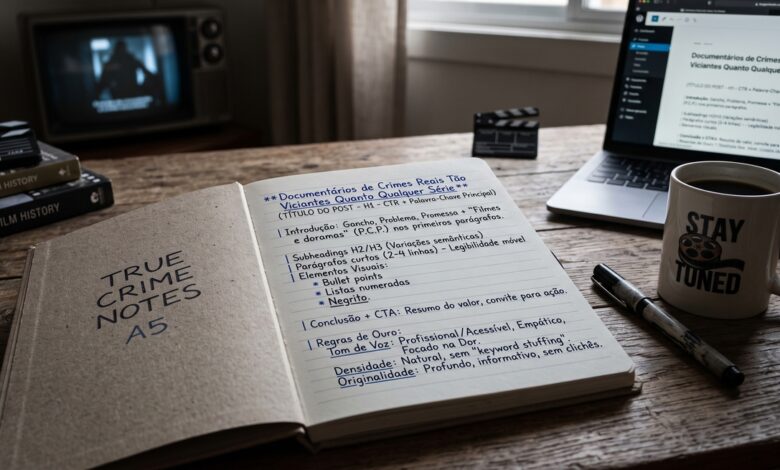 TRUE
CRIME
NOTES
A5
**Documentários de Crimes Reais Tão
Viciantes Quanto Qualquer Série**
(TÍTULO DO POST - H1 - CTR + Palavra-Chave Principal)
Introdução: Gancho, Problema, Promessa + "Filmes
e doramas" (P.C.P.) nos primeiros parágrafos.
Subheadings H2/H3 (Variações semânticas)
Parágrafos curtos (2-4 linhas) - Legibilidade móvel
Elementos Visuais:
* Bullet points
* Listas numeradas
* Negrito.
Conclusão + CTA: Resumo do valor, convite para ação.
Regras de Ouro:
Tom de Voz: Profissional/Acessível, Empático,
Focado na Dor.
Densidade: Natural, sem "keyword stuffing".
Originalidade: Profundo, informativo, sem clichês.
HISTORY
FILM HISTORY
Documentários de Crimes
Viciantes Quanto Qualque
(TÍTULO DO POST - H1 - CTR + Palavra-Chave
STAY
TUNED